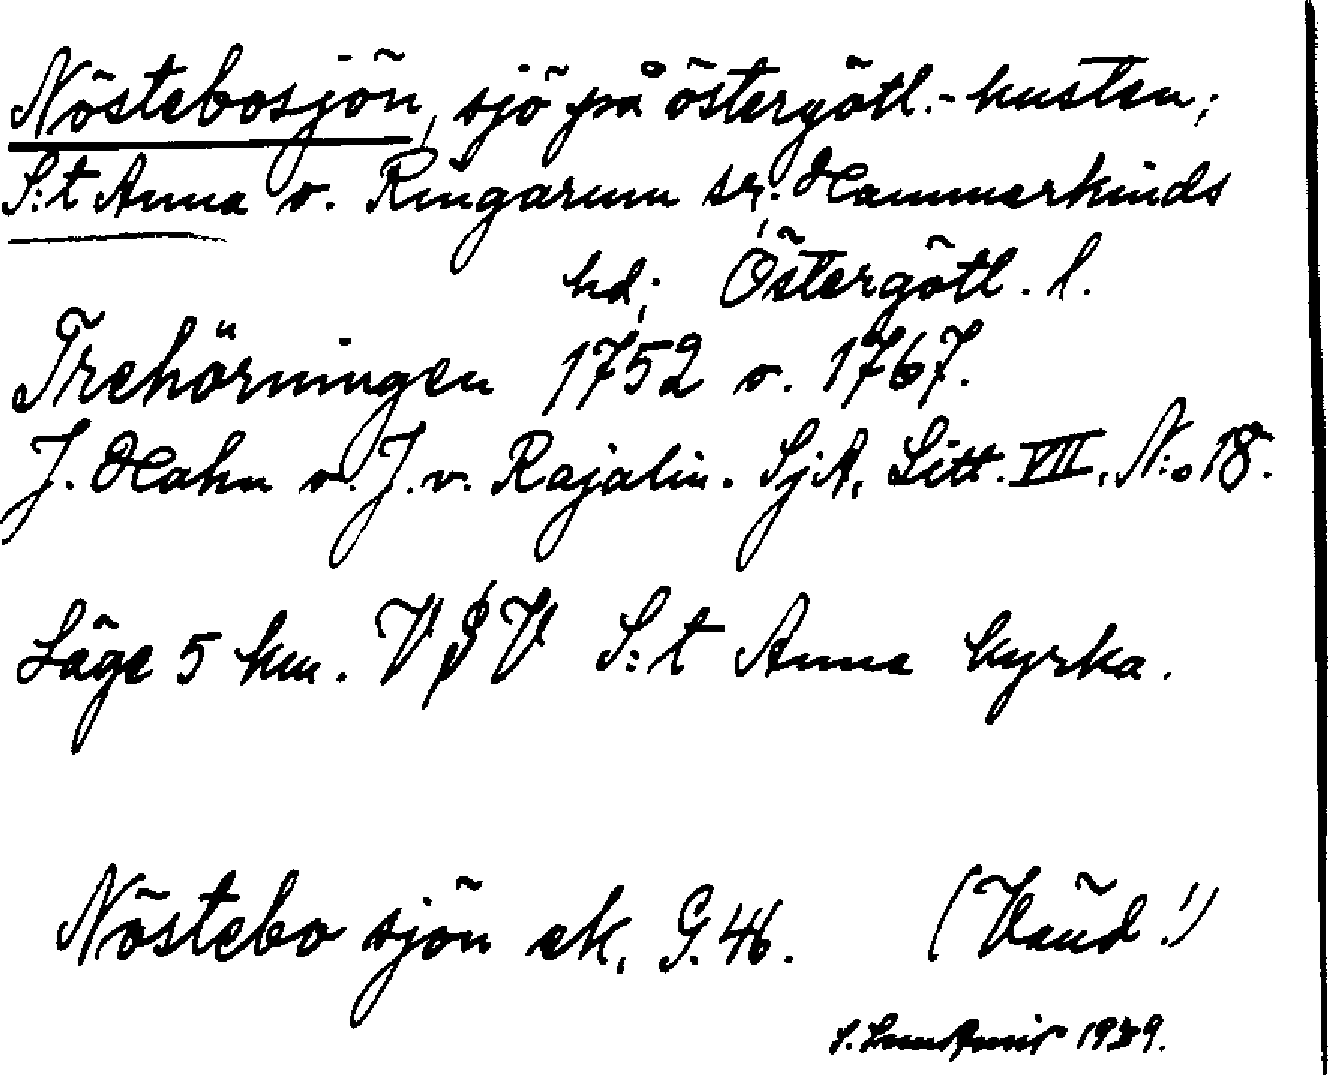 Nöstebosjön, sjö på östergötl.-kusten;
S:t Anna o. Ringarum sr; Hammarkinds
hd; Östergötl. l.
Trehörningen 1752 o. 1767.
J. Hahn o. J. v. Rajalin. SjA, Litt. VII, N:o 18.
Läge 5 km. VSV S:t Anna kyrka.
Nöstebo sjön ek. G. 46. (Vänd!)
1939.